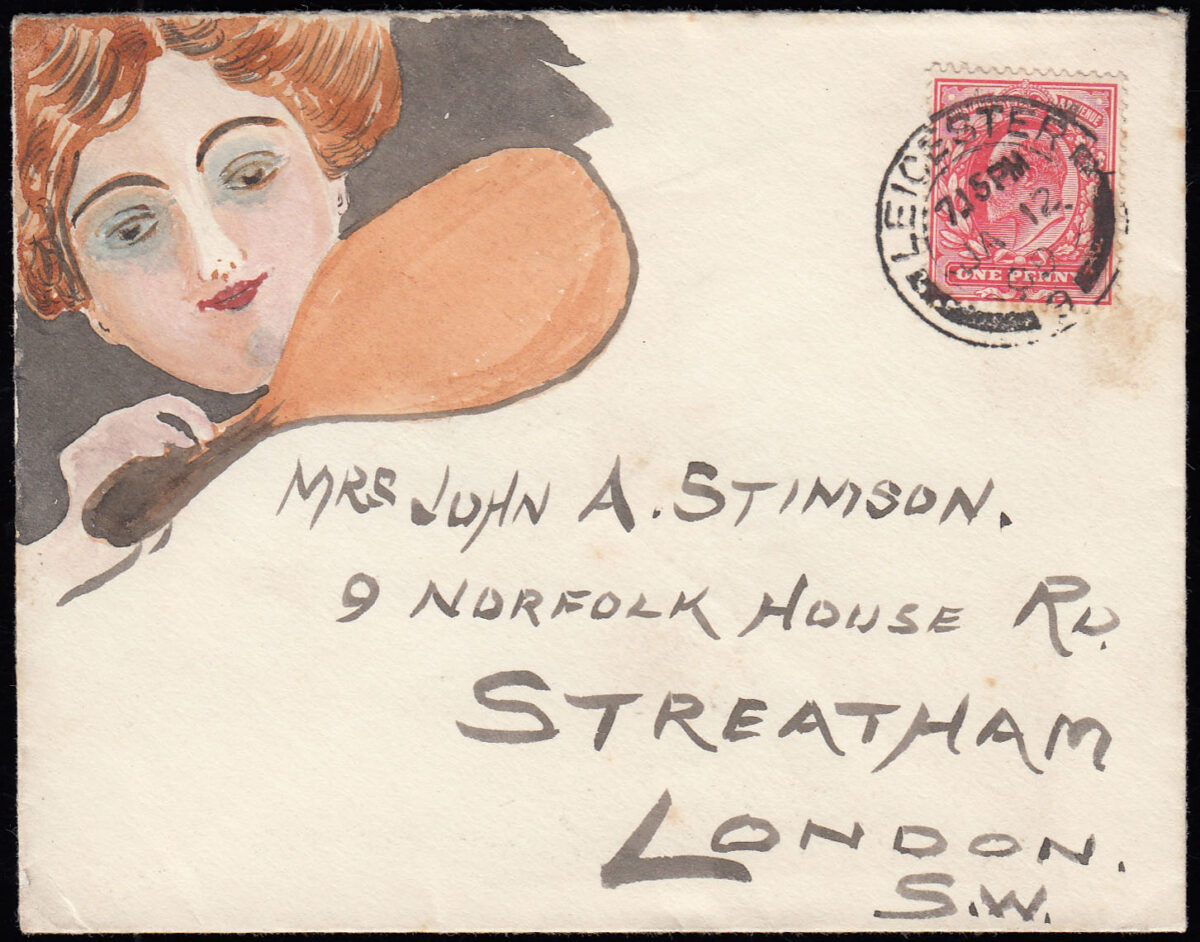 LEICESTER
7.15PM
JA 12
09
ONE PENNY
MRS JOHN A. STIMSON.
9 NORFOLK HOUSE RD.
STREATHAM
LONDON.
S.W.